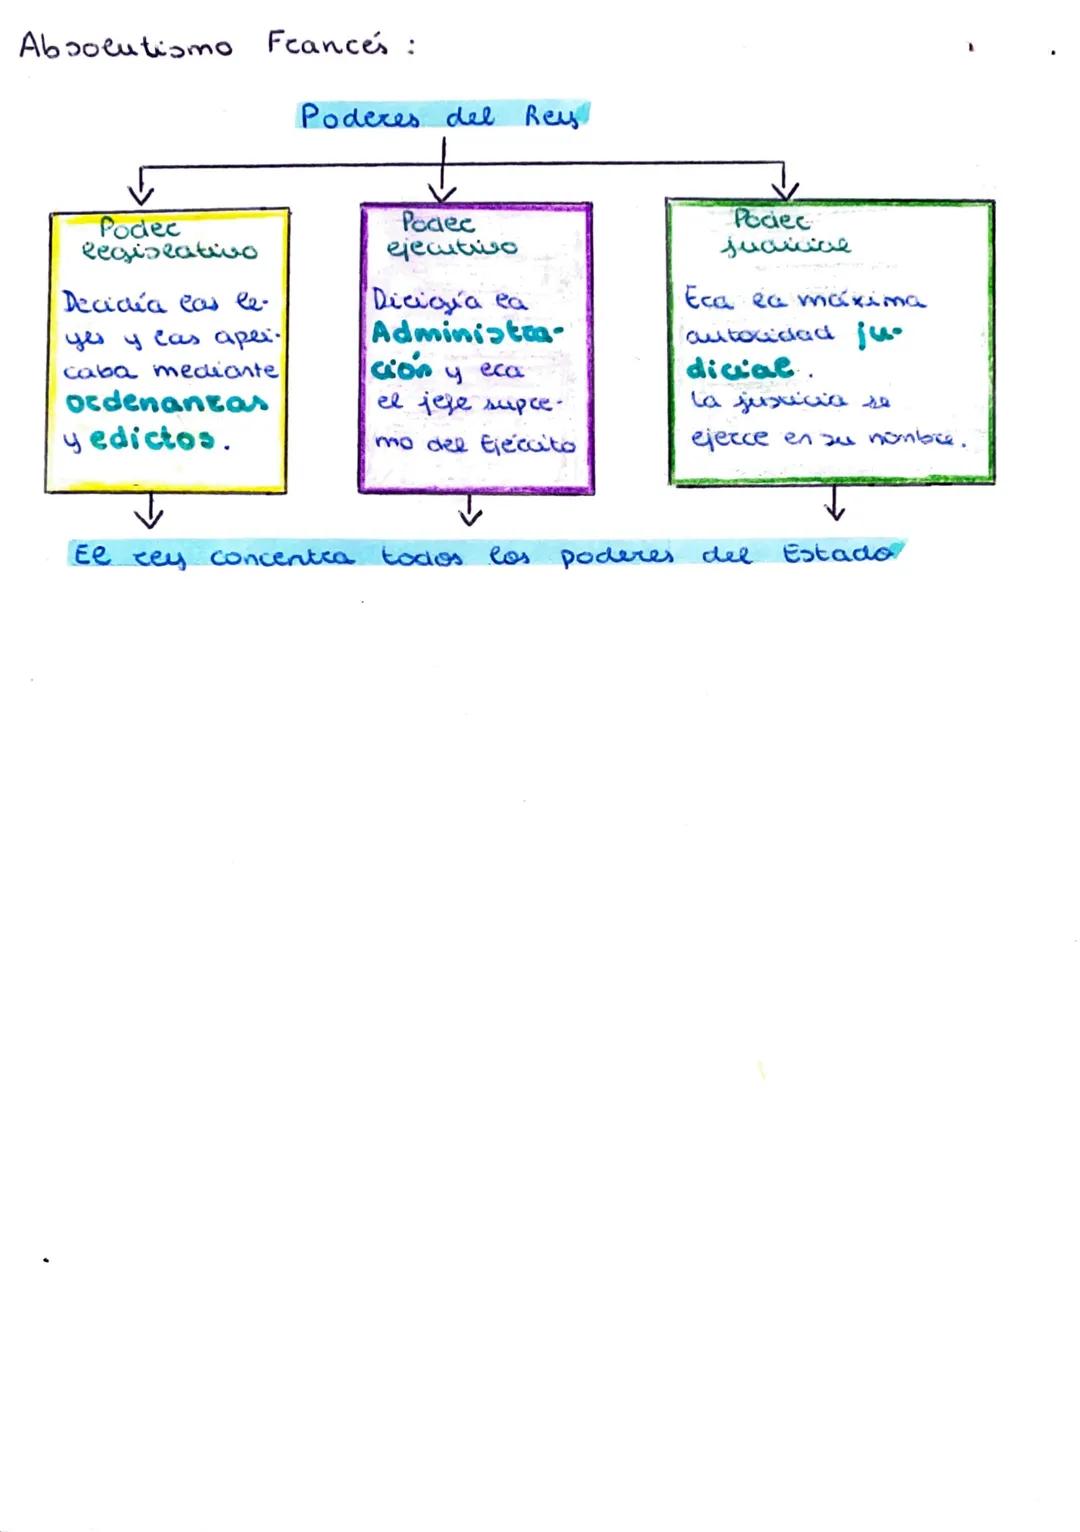 Absolutismo Francés :
Poderes del Rey
Poder
legislativo
Decidía las le-
yes y las apli-
caba mediante
ordenanzas
y edictos.
Poder
ejecutivo
Dirigía la
Administra-
ción y era
el jefe supre-
mo del Ejército
Poder
judicial
Era la máxima
autoridad ju-
dicial.
La justicia se
ejerce en su nombre.
El rey concentra todos los poderes del Estado